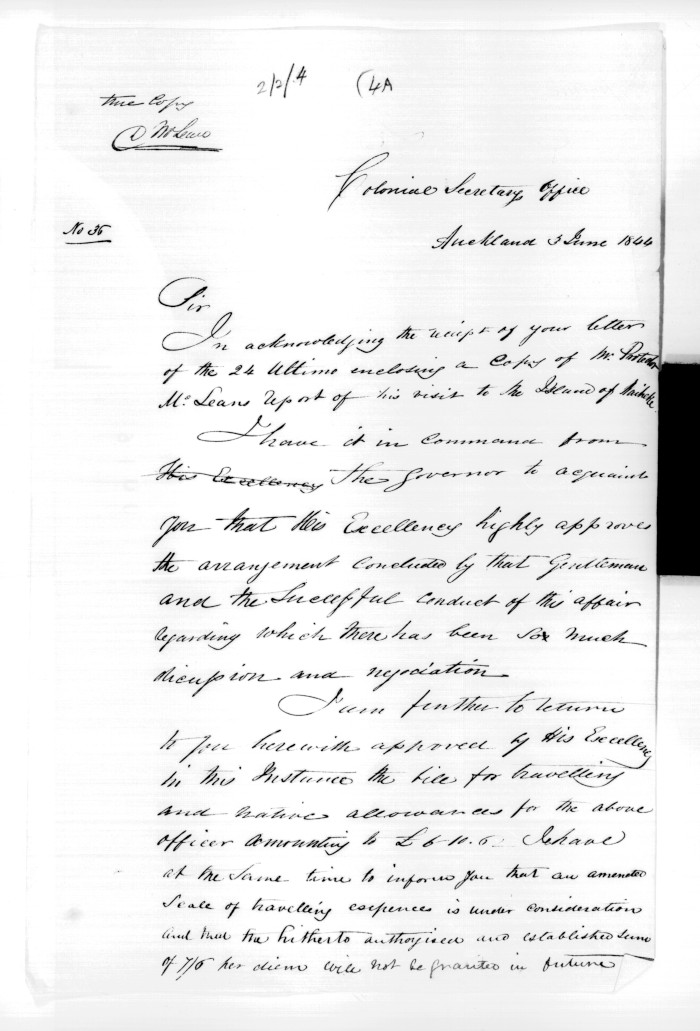 2/2/4 (4A
true Copy
D McLean
Colonial Secretary Office
No 36
Auckland 3 June 1844
Sir
In acknowledging the receipt of your letter
of the 24 Ultimo enclosing a Copy of Mr Protector
McLeans report of his visit to the Island of Waiheke
I have it in command from
His Excellency the Governor to acquaint
you that His Excellency highly approves
the arrangement concluded by that Gentleman
and the Successful conduct of this affair
regarding which there has been so much
dicussion and negociation
I am further to return
to you herewith approved by His Excellency
in this Instance the bill for travelling
and native allowances for the above
officer amounting to £6.10.6: I have
at the same time to inform you that an amended
Scale of travelling expences is under consideration
and that the hitherto authorised and established sum
of 7/6 per diem will not be granted in future